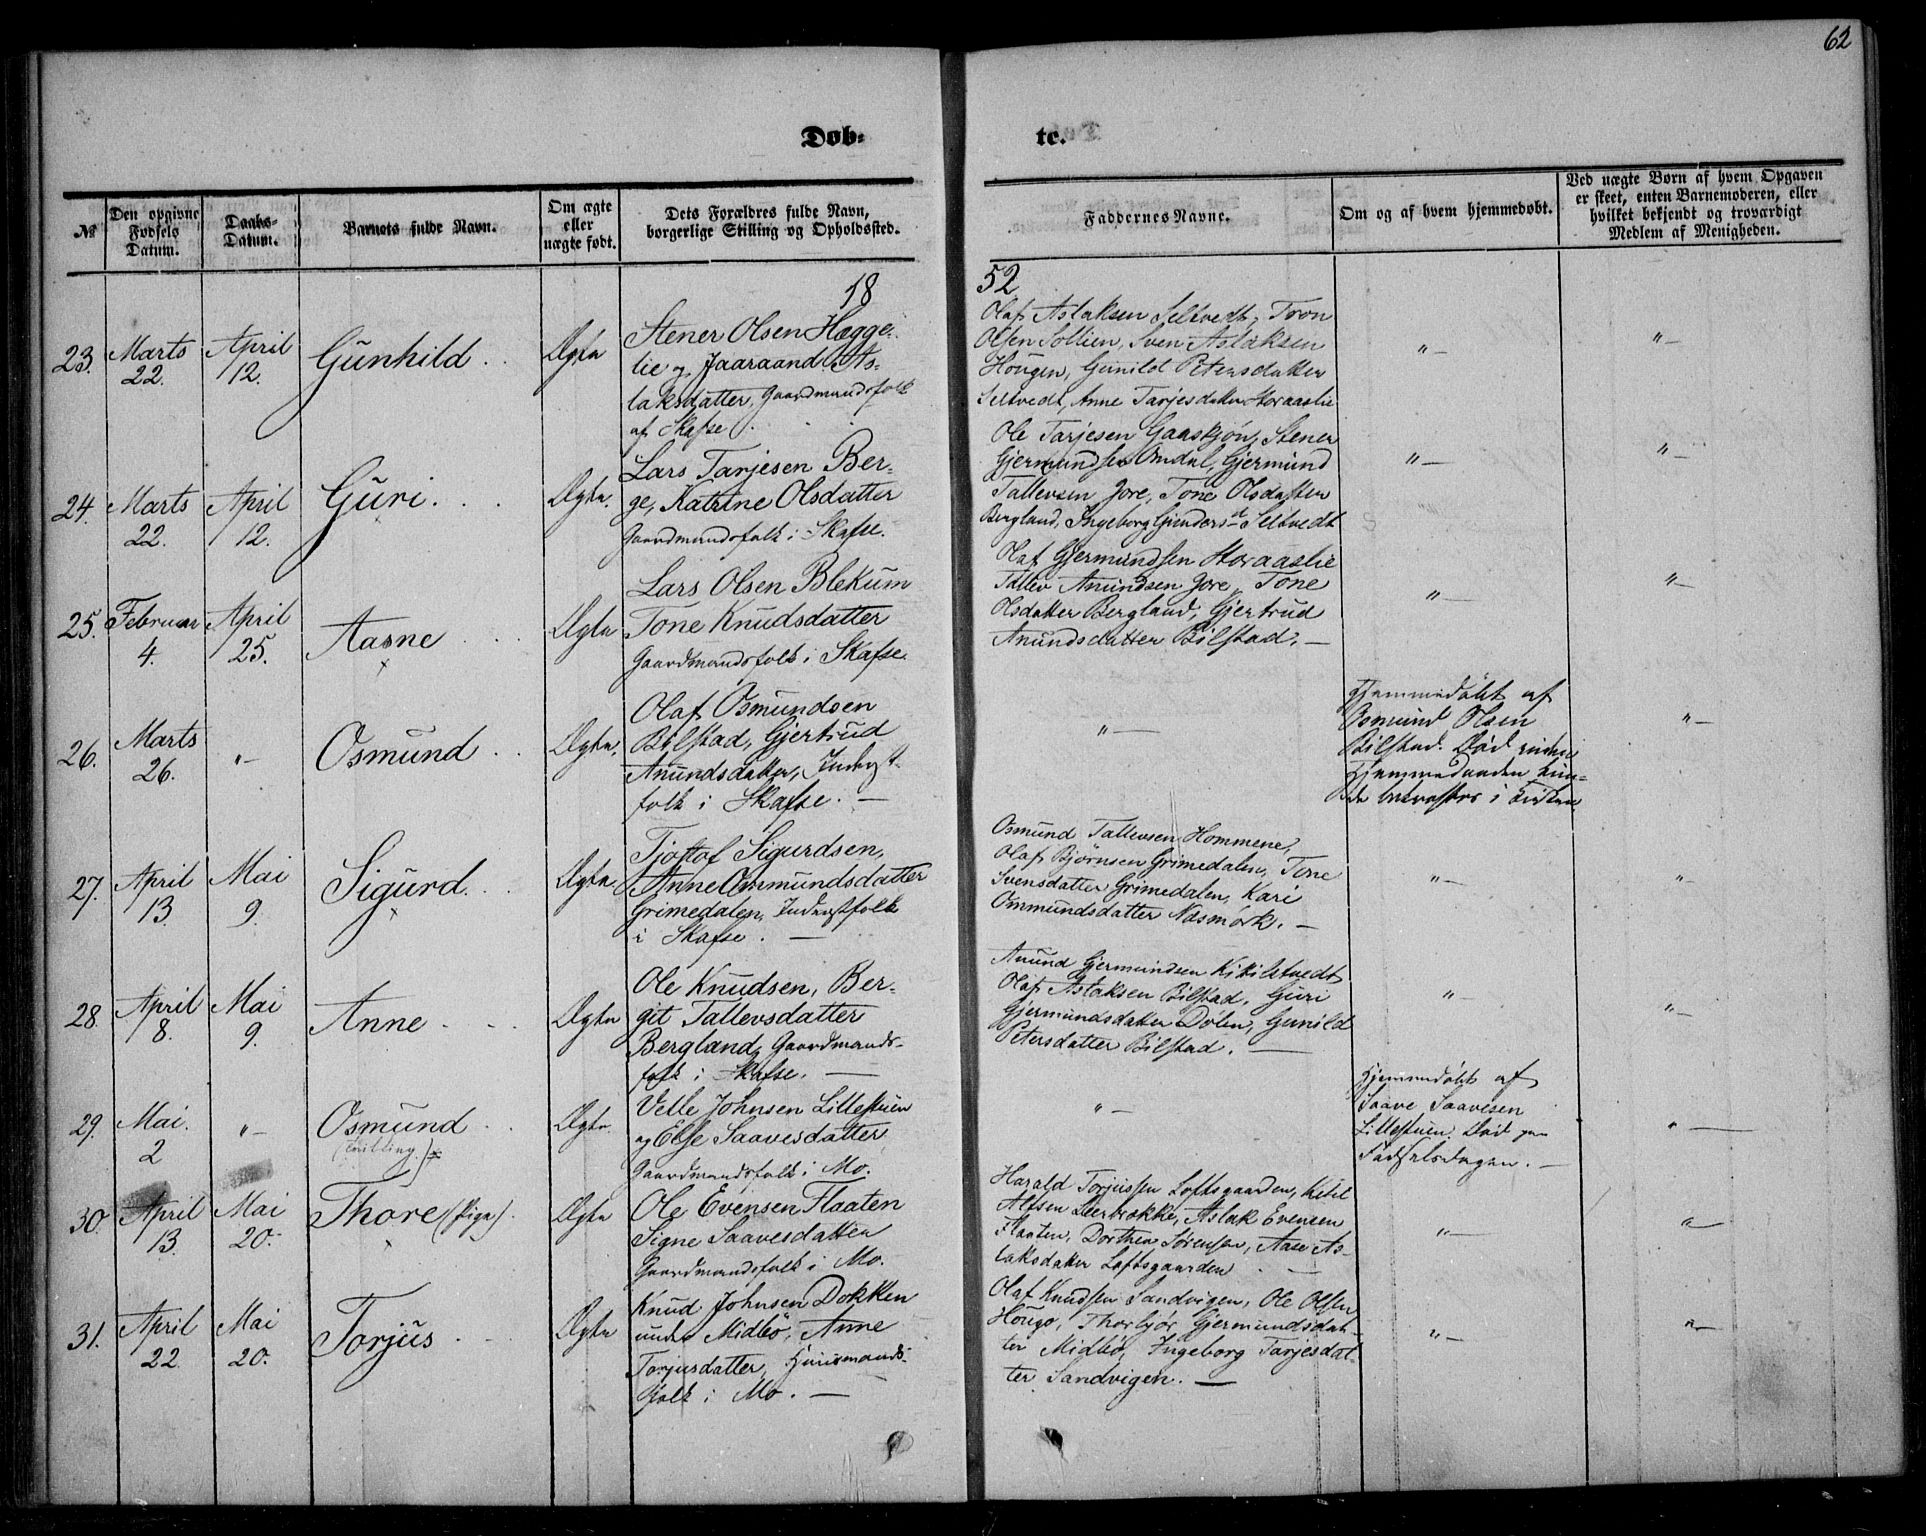 62
Døb-
te.
№
Den opgivne Fødsels Datum.
Daabs-Datum.
Barnets fulde Navn.
Om ægte eller uægte født.
Dets Forældres fulde Navn, borgerlige Stilling og Opholdssted.
Faddernes Navne.
Om og af hvem hjemmedøbt.
Ved uægte Børn af hvem Opgaven er skeet, enten Barnemoderen, eller hvilket bekjendt og troværdigt Medlem af Menigheden.
18
52
23.
Marts 22.
April 12.
Gunhild
Ægte
Stener Olsen Hægge-
lie og Jaaraand As-
laksdatter, Gaardmandsfolk
af Skafse.
Olaf Aslaksen Seltvedt, Tron
Olsen Sollien, Sven Aslaksen
Hougen, Gunild Petersdatter
Seltvedt, Anne Tarjesdatter Storaaslie
"—
"—
24.
Marts 22.
April 12.
Guri
Ægte.
Lars Tarjesen Ber-
ge, Katrine Olsdatter
Gaardmandsfolk i Skafse.
Ole Tarjesen Gaaskjön, Stener
Gjermundsen Omdal, Gjermund
Tallevsen Jore, Tone Olsdatter
Bergland, Ingeborg Gunders Seltvedt
"—
"—
25.
Februar 4.
April 25.
Aasne
Ægte
Lars Olsen Blekum
Tone Knudsdatter
Gaardmandsfolk i Skafse.
Olaf Gjermundsen Storaaslie
Tallev Anundsen Jore, Tone
Olsdatter Bergland, Gjertrud
Anundsdatter Bilstad. —
"—
"—
26.
Marts 26.
"—
Osmund
Ægte.
Olaf Osmundsen
Bilstad, Gjertrud
Anundsdatter, Inderst-
folk i Skafse. —
"—
Hjemmedøbt af
Osmund Olsen
Bilstad. Död inden
Hjemmedaaben kun-
de bekræftes i Kirken
"—
27.
April 13.
Mai 9.
Sigurd.
Ægte.
Tjostof Sigurdsen,
Anne Ommundsdatter
Grimedalen, Inderstfolk
i Skafse. —
Osmund Tallevsen Hommene,
Olaf Björnsen Grimedalen, Tone
Svensdatter Grimedalen, Kari
Ommundsdatter Næsmörk. —
"—
"—
28.
April 8.
Mai 9.
Anne
Ægte
Ole Knudsen, Ber-
git Tallevsdatter
Bergland, Gaardmands-
folk i Skafse. —
Anund Gjermundsen Kikiletvedt
Olaf Aslaksen Bilstad, Guri
Gjermundsdatter Dölen, Gunild
Petersdatter Bilstad. —
"—
"—
29.
Mai. 2
"—
Osmund
(Tvilling.)
Ægte.
Vetle Johnsen Lillestuen
og Else Saavesdatter
Gaardmandsfolk i Mo.
"—
Hjemmedøbt af
Saave Saavesen
Lillestuen. Död paa
Födselsdagen. —
"—
30.
April 13.
Mai 20.
Thore (Pige).
Ægte
Ole Evensen Flaaten
Signe Saavesdatter
Gaardmandsfolk i Mo.
Harald Torjussen Loftsgaarden, Ketil
Alfsen Leerbrokke, Aslak Evensen
Flaaten, Dorthea Sörensen, Aase As-
laksdatter Loftsgaarden —
"—
"—
31.
April 22.
Mai 20.
Torjus
Ægte
Knud Johnsen Dokken
under Midbö, Anne
Torjusdatter, Huusmands-
folk i Mo. —
Olaf Knudsen Sandvigen, Ole Olsen
Hougo, Thorbjör Gjermundsdat-
ter Midbö, Ingeborg Tarjesdat-
ter Sandvigen. —
"—
"—